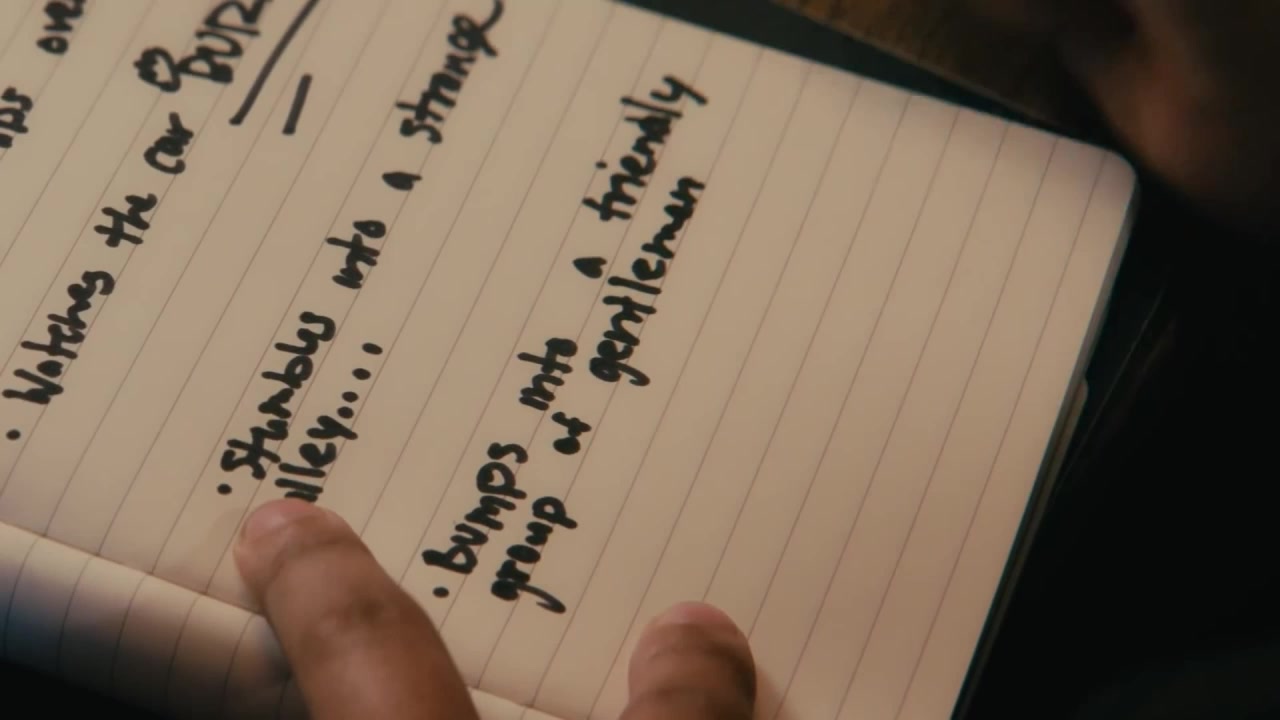 over
• Watches the car BUR
• Stumbles into a strange
alley....
• bumps into a friendly
group of gentleman